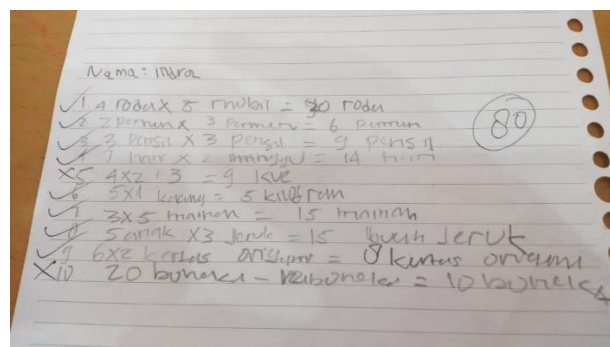 Nama: Indra
80
✓1 4 roda x 5 mobil = 20 roda
✓2 2 permen x 3 permen = 6 permen
✓3 3 pensil x 3 pensil = 9 pensil
✓4 7 hari x 2 minggu = 14 hari
X5 4x2+3 = 9 kue
✓6 5x1 = 5
✓7 3x5 mainan = 15 mainan
✓8 5 anak x3 Jeruk = 15 buah Jeruk
✓9 6x2 kertas origami = kertas origami
X10 20 boneka - = 10 boneka